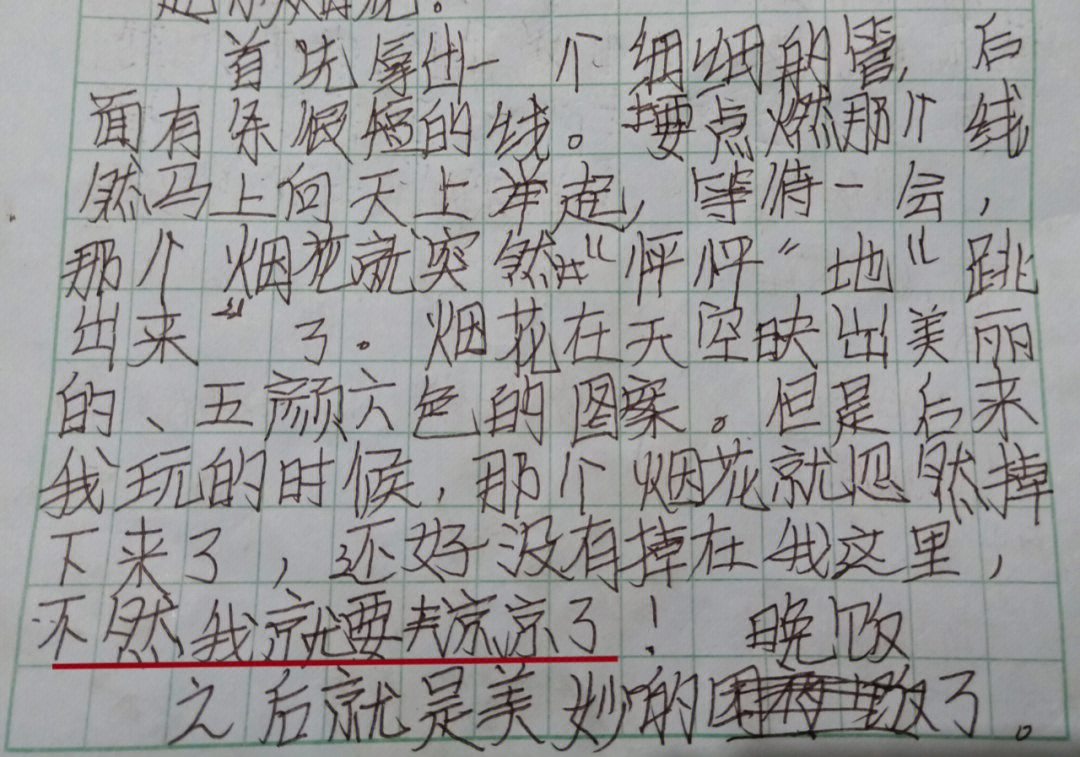 首先拿出一个细细的管,后
面有条很短的线。要点燃那个线
然马上向天上举起,等待一会,
那个烟花就突然“怦怦”地“跳
出来”了。烟花在天空映出美丽
的、五颜六色的图案。但是后来
我玩的时候,那个烟花就忽然掉
下来了,还好没有掉在我这里,
不然我就要去凉凉了!晚饭
之后就是美妙的了。